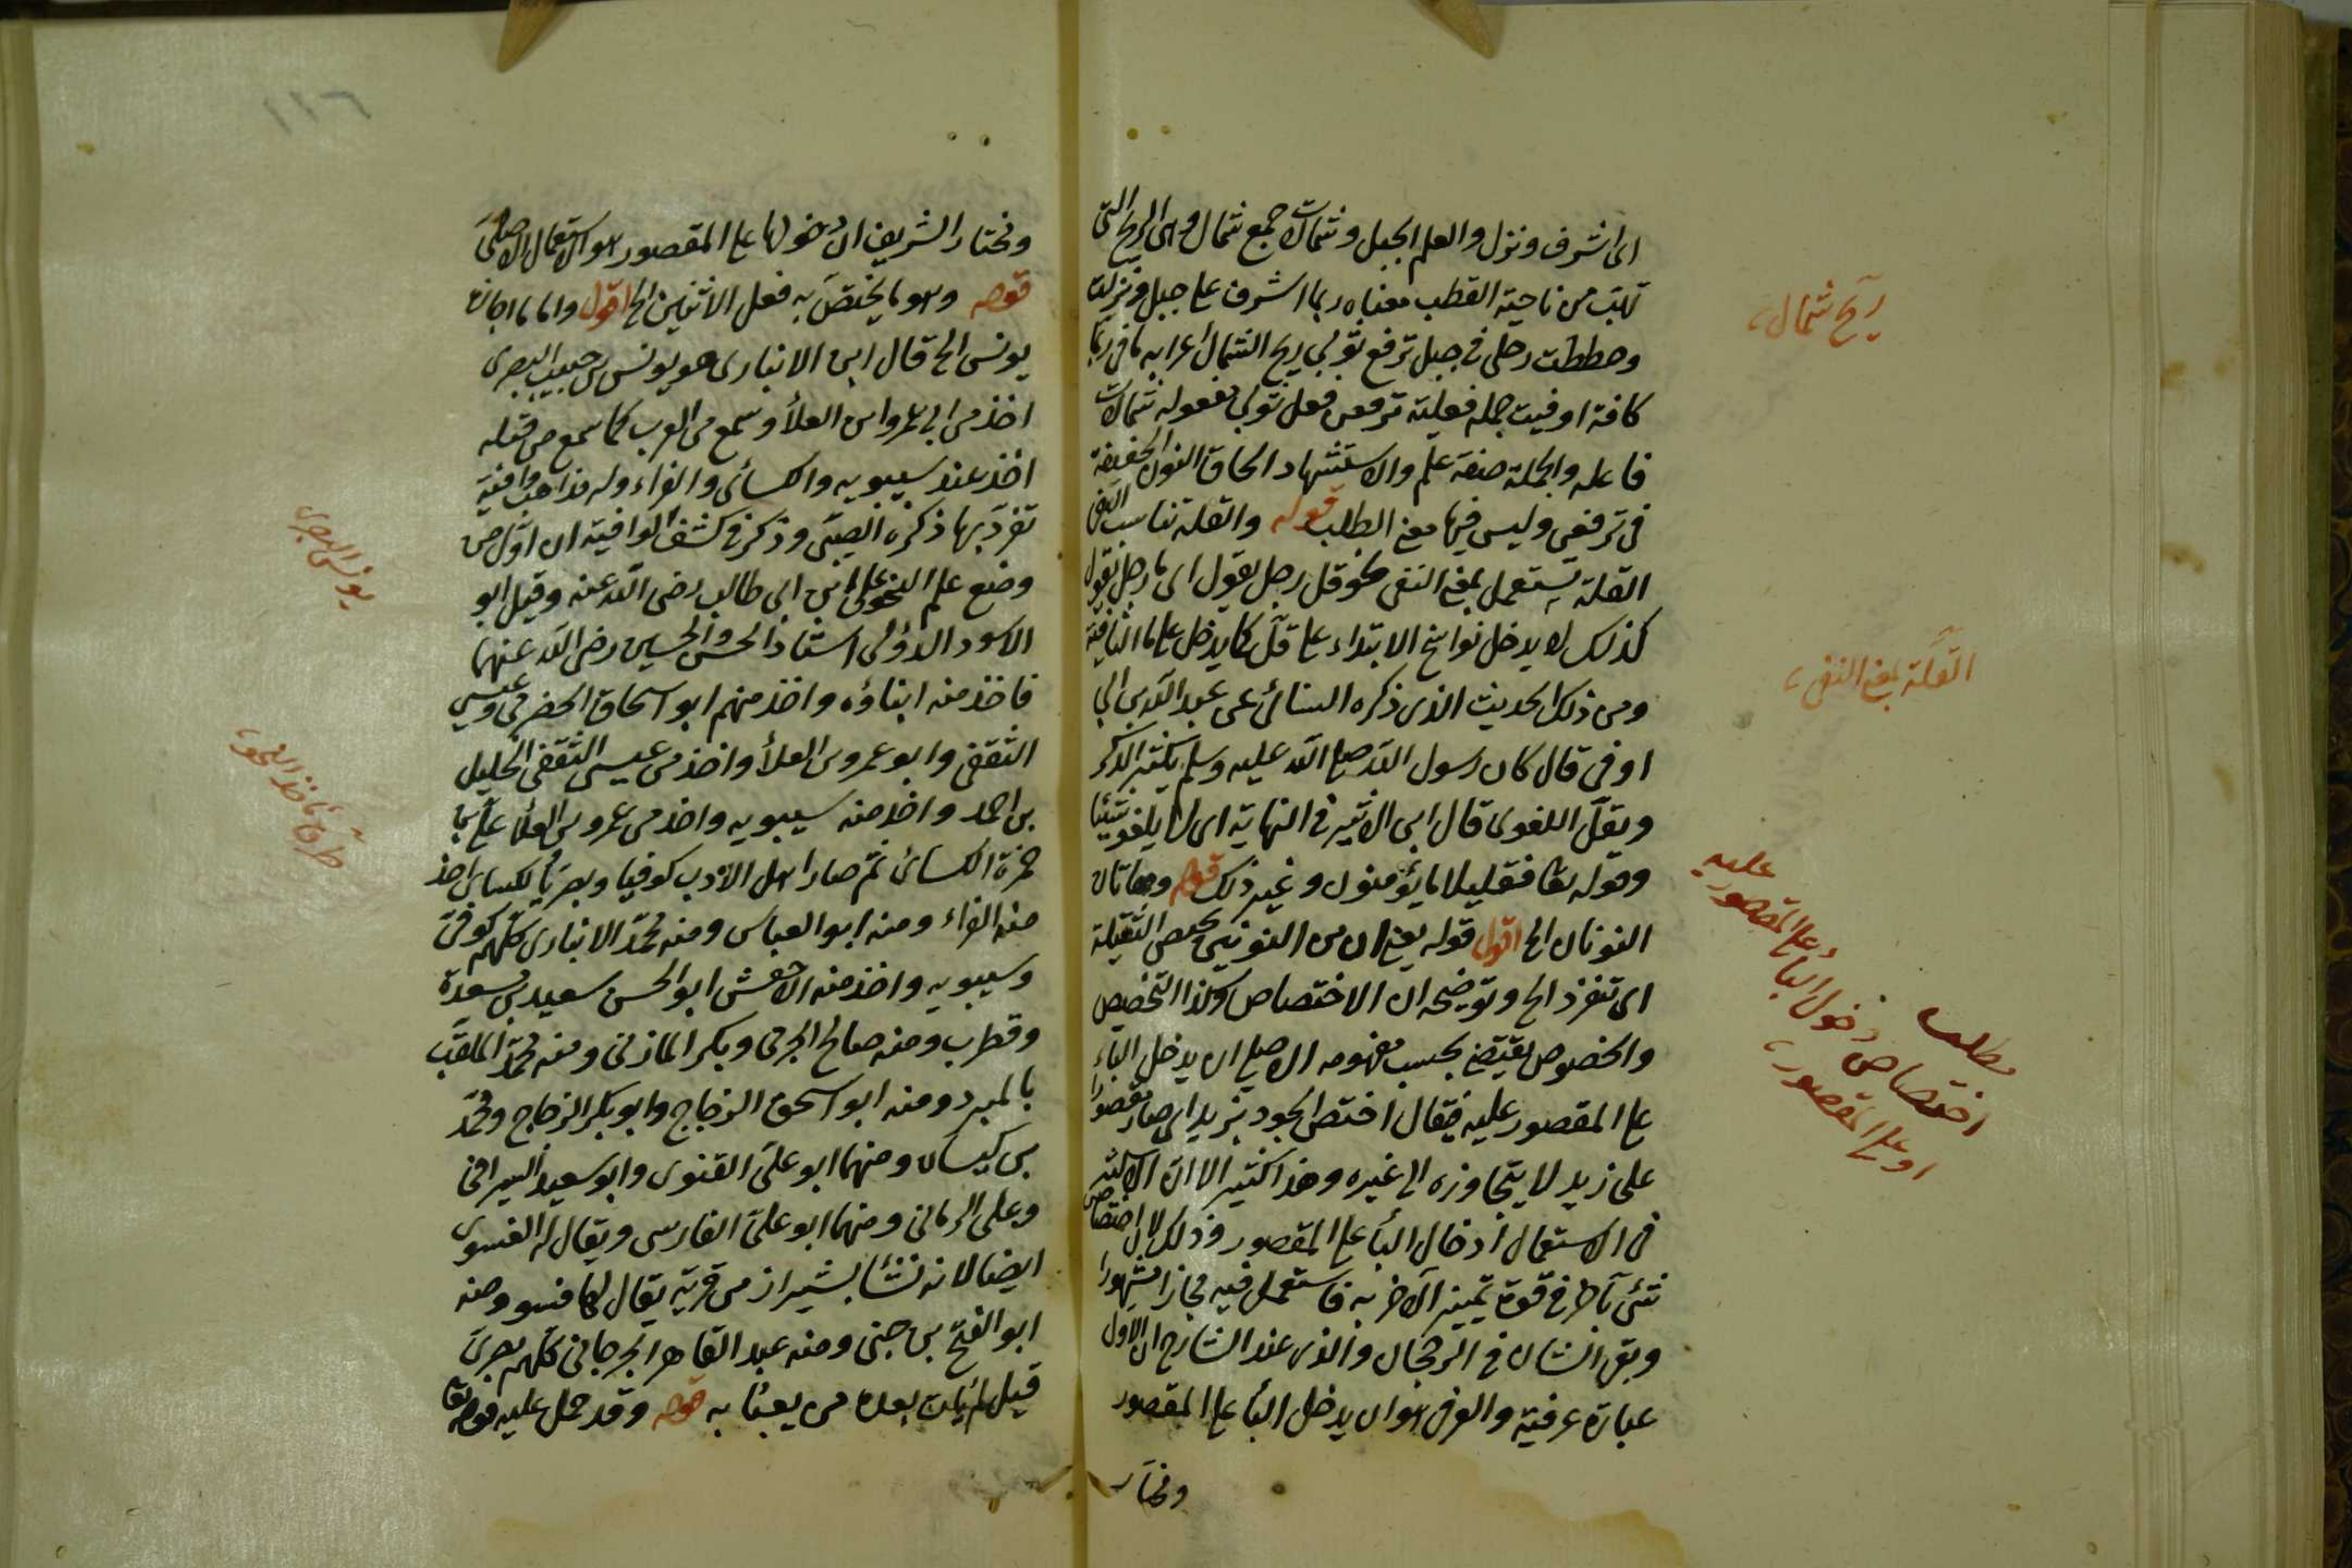 اى اشرف ونزل والعلم الجبل وشمالات جمع شمال وهى الريح التى
تهب من ناحية القطب معناه ربما اشرف على جبل ونزلت
وحططت رحلى فى جبل ترفع ثوبى ريح الشمال اعرابه ما فى ربما
كافة اوفيت جملة فعلية ترفعن فعل ثوبى مفعوله شمالات
فاعله والجملة صفة علم والاستشهاد الحاق النون الخفيفة
فى ترفعن وليس فيها معنى الطلب قوله والقلة تناسب النفى
القلة تستعمل بمعنى النفى نحو قل رجل يقول اى ما رجل يقول
كذلك لا يدخل نواسخ الابتداء على قل كما يدخل على ما النافية
ومن ذلك الحديث الذى ذكره النسائى عن عبد الله بن ابى
اوفى قال كان رسول الله صلى الله عليه وسلم يكثر الذكر
ويقل اللغو قال ابن الاثير فى النهاية اى لا يلغو شيئا
وقوله تعا فقليلا ما يؤمنون وغير ذلك قوله وهاتان
النونان الخ اقول قوله يعنى ان من النونين تختص الثقيلة
اى تنفرد الخ وتوضيحه ان الاختصاص وكذا التخصيص
والخصوص يقتضى بحسب مفهومه الاصلى ان يدخل الباء
على المقصور عليه فيقال اختص الجود بزيد اى صار مقصورا
على زيد لا يتجاوزه الى غيره وهذا كثير الا ان الاكثر
فى الاستعمال ادخال الباء على المقصور وذلك لان اختصاص
شئ بآخر فى قوة تميز الآخر به فاستعمل فيه مجازا مشهورا
وبقى الشان فى الرجحان والذى عند الشارح ان الاول
عبارة عرفية والعرف هو ان يدخل الباء على المقصور
ومختار
ريح شمال
القلة بمعنى النفى
مطلب
اختصاص دخول الباء على المقصور عليه
او على المقصور
١١٦
ومختار الشريف ان دخولها على المقصور هو الاستعمال الاصلى
قوله وهو ما يختص به فعل الاثنين الخ اقول واما ما اجازه
يونس الخ قال ابن الانبارى هو يونس بن حبيب البصرى
اخذ من ابى عمرو ابن العلاء وسمع من العرب كما سمع من قبله
اخذ عنه سيبويه والكسائى والفراء وله مذاهب واقيسة
تفرد بها ذكره العينى وذكر فى كشف الوافية ان اول من
وضع علم النحو على ابن ابى طالب رضى الله عنه وقيل ابو
الاسود الدؤلى استاذ الحسن والحسين رضى الله عنهما
فاخذ منه ابناؤه واخذ منهم ابو اسحاق الحضرمى وعيسى
الثقفى وابو عمرو بن العلاء واخذ من عيسى الثقفى الخليل
بن احمد واخذ منه سيبويه واخذ من عمرو بن العلاء على بن
حمزة الكسائى ثم صار اهل الادب كوفيا وبصريا لكسائى اخذ
منه الفراء ومنه ابو العباس ومنه محمد الانبارى كلهم كوفى
وسيبويه واخذ منه الاخفش ابو الحسن سعيد بن مسعدة
وقطرب ومنه صالح الجرمى وبكر المازنى ومنه محمد الملقب
بالمبرد ومنه ابو اسحق الزجاج وابو بكر الزجاج ومحمد
بن كيسان ومنهما ابو على القنوى وابو سعيد السيرافى
وعلى الرمانى ومنهما ابو على الفارسى ويقال له الفسوى
ايضا لانه نشأ بشيراز من قرية يقال لها فسو ومنه
ابو الفتح بن جنى ومنه عبد القاهر الجرجانى كلهم بصرى
قيل لم يأت بعده من يعبئا به قوله وقد حمل عليه قوله تعا
يونس البصرى
طرق مأخذ النحو